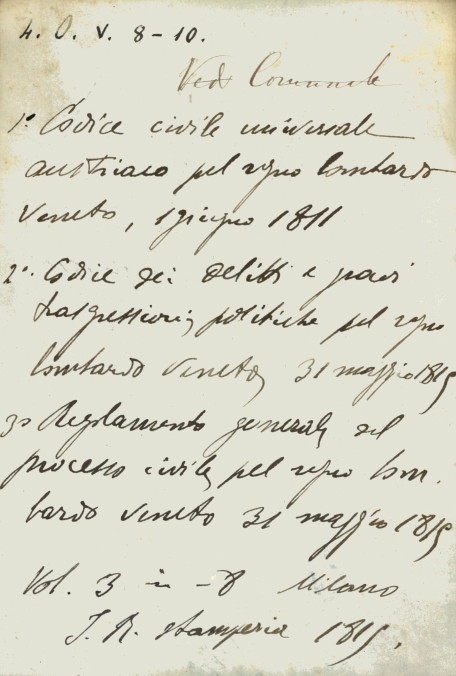 4. O. V. 8-10.
Ved Comunale
1º Codice civile universale
austriaco pel regno lombardo
veneto, 1 giugno 1811
2º. Codice dei delitti e gravi
trasgressioni politiche pel regno
lombardo veneto, 31 maggio 1815
3º Regolamento generale del
processo civile, pel regno lom.
bardo veneto 31 maggio 1815
Vol. 3 in -8 Milano
I. R. stamperia 1815,